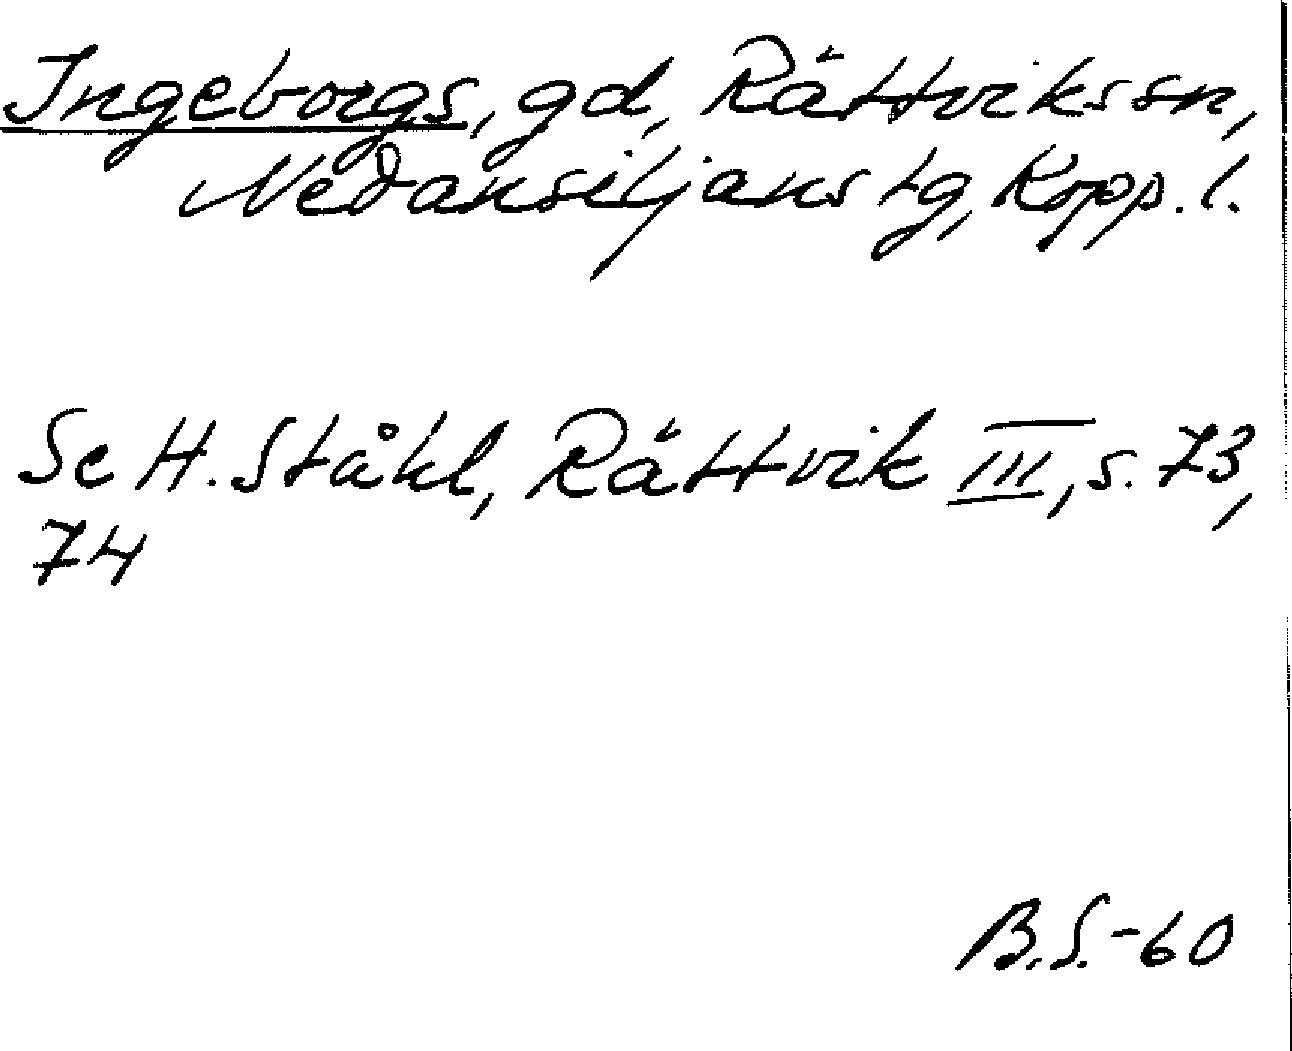 Ingeborgs, gd, Rättviks sn,
Nedansiljans tg, Kopp. l.
Se H. Ståhl, Rättvik III, s. 73,
74
B.S.-60